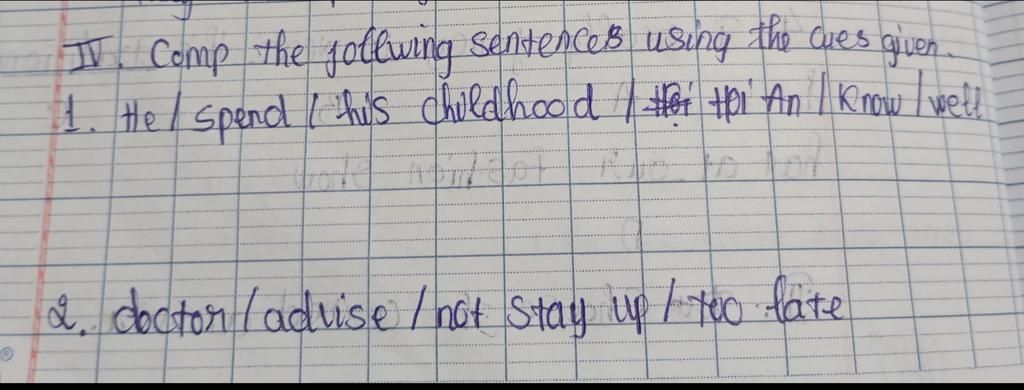 IV. Comp the following sentences using the cues given.
1. He / spend / his childhood / Hoi An / Know / well
2. doctor / advise / not stay up / too late